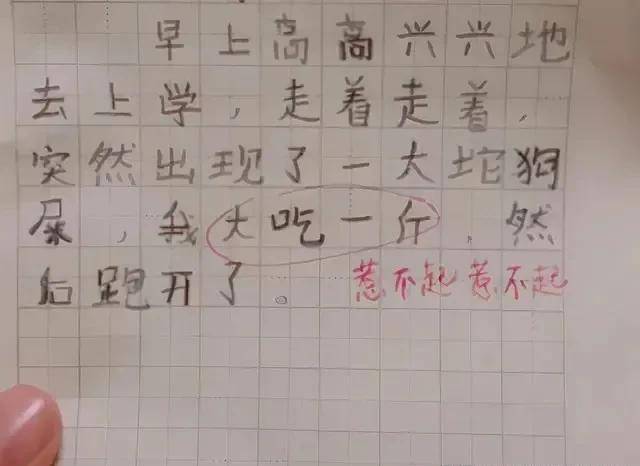 早上高高兴兴地
去上学，走着走着，
突然出现了一大坨狗
屎，我大吃一斤，然
后跑开了。惹不起惹不起